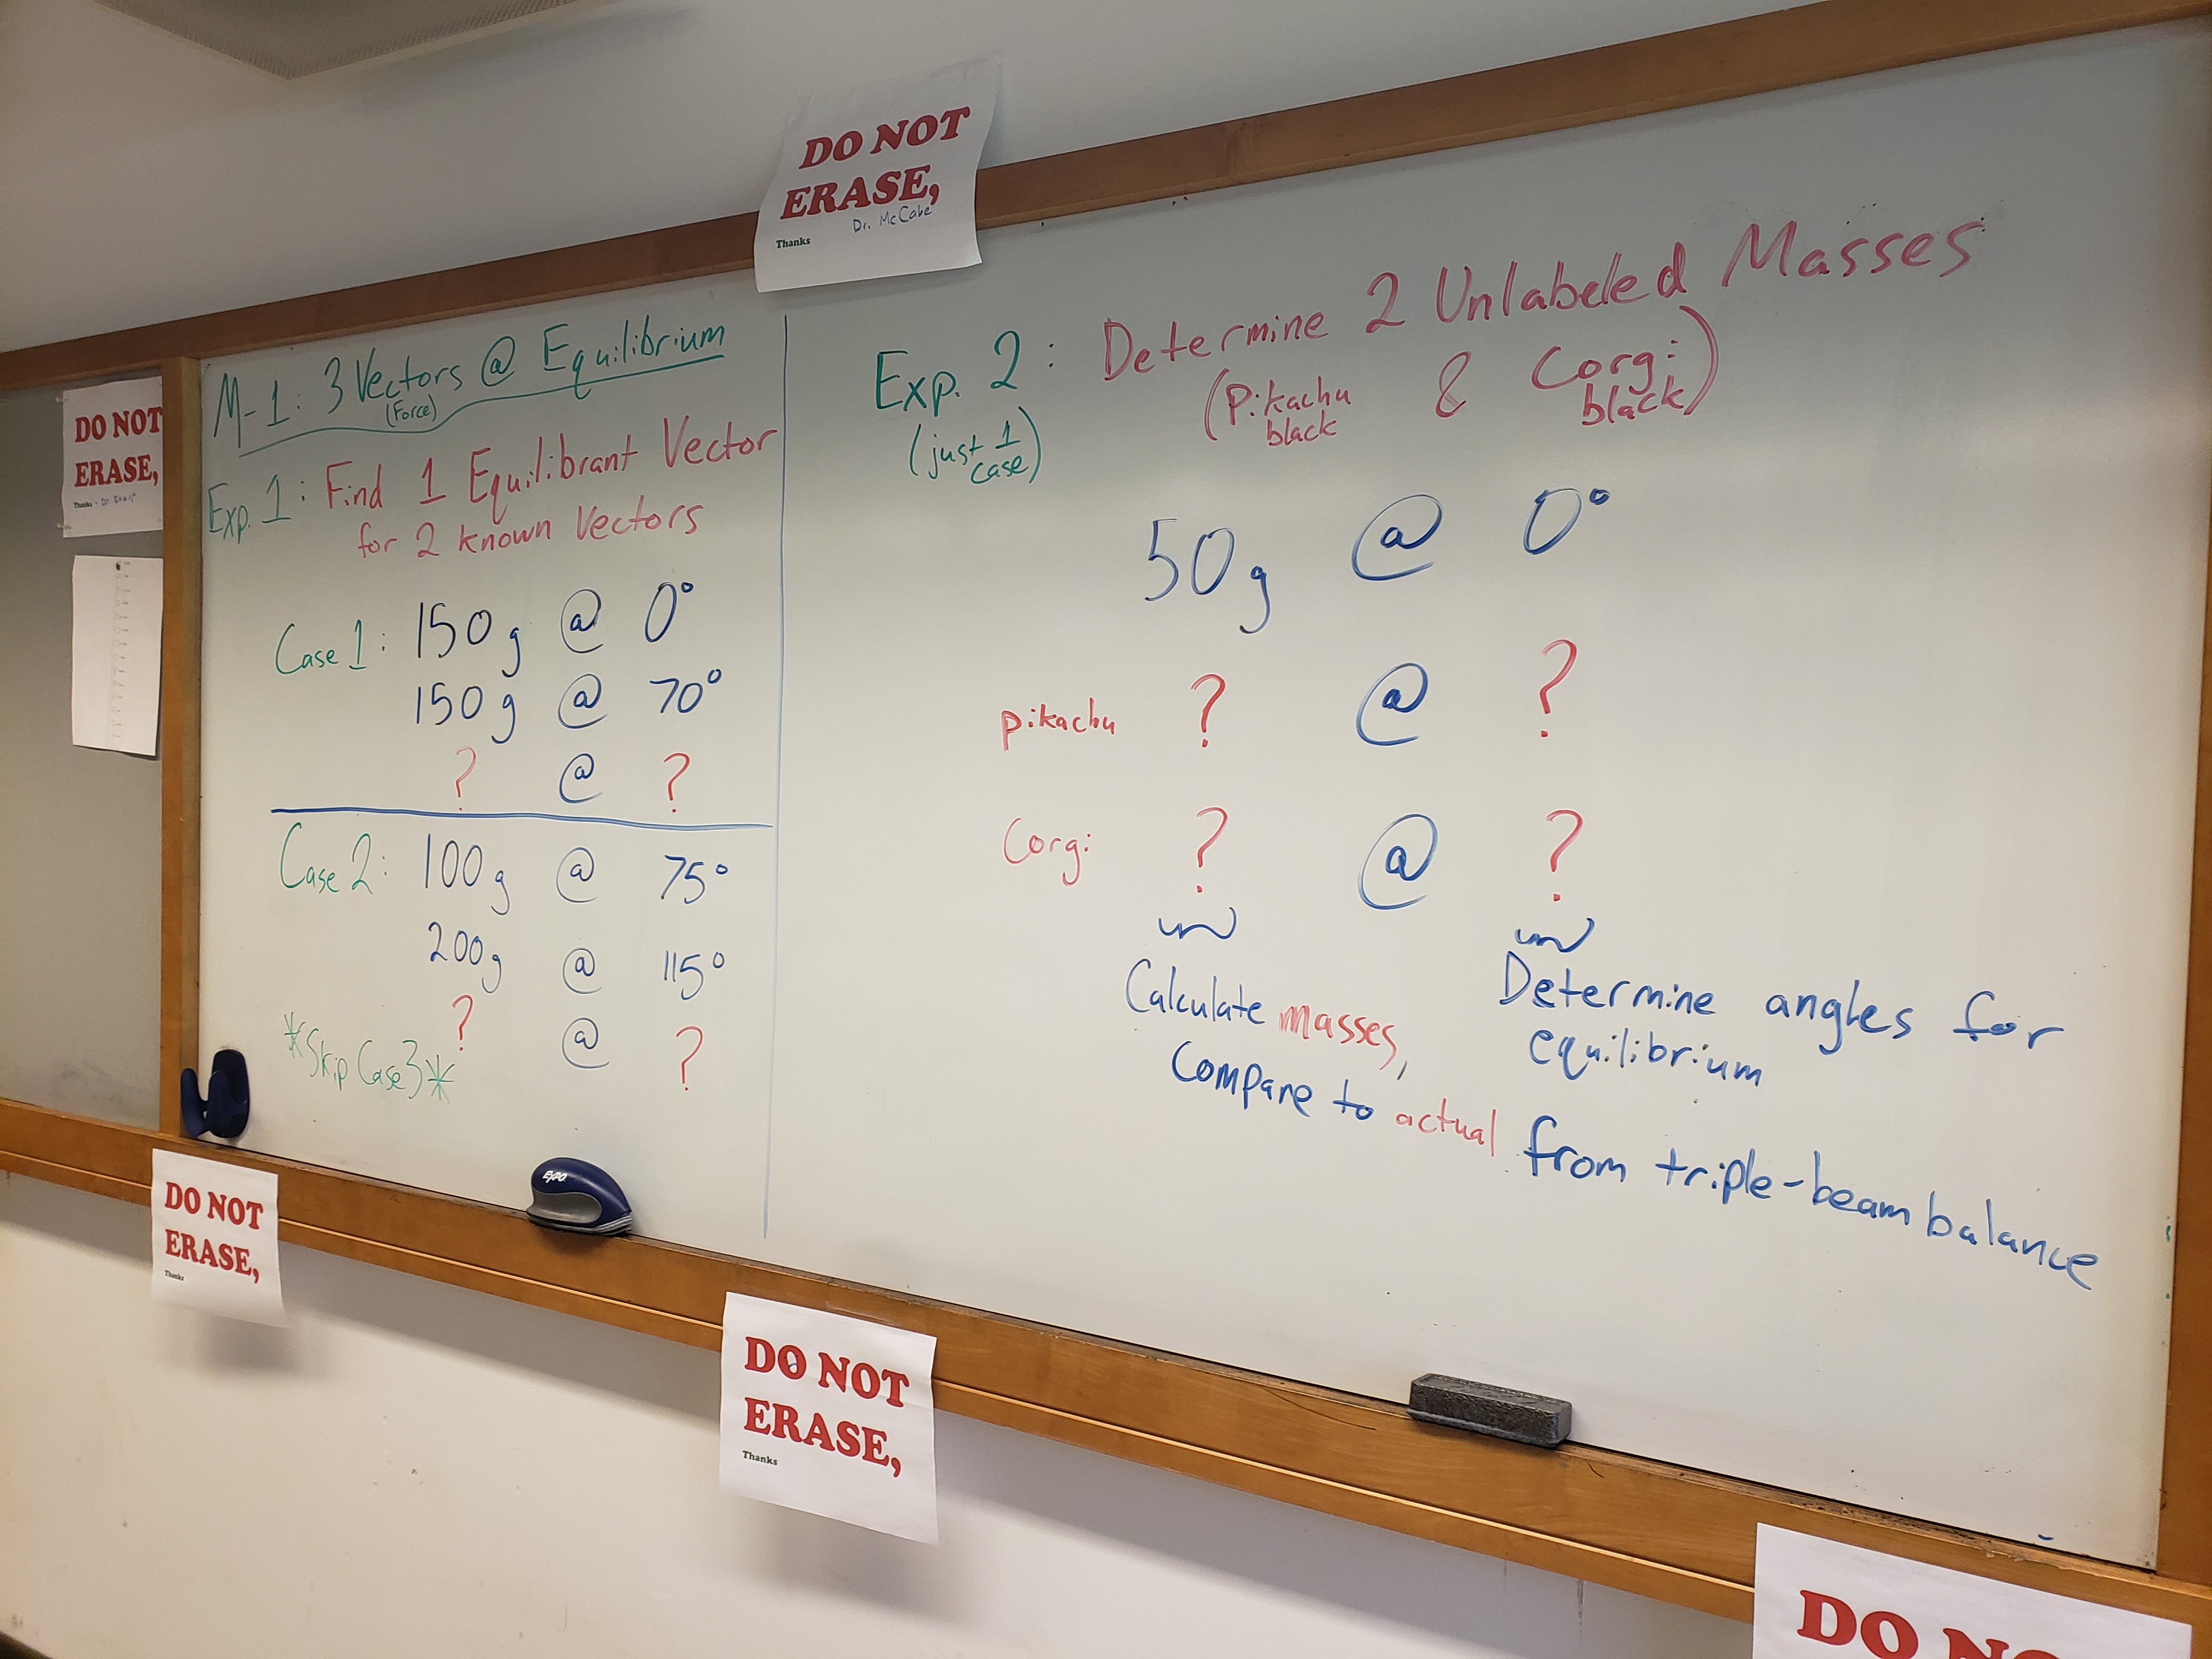 DO NOT
ERASE,
Dr. McCabe
Thanks
DO NOT
ERASE,
Thanks
M-1: 3 Vectors @ Equilibrium
(Force)
Exp. 1: Find 1 Equilibrant Vector
for 2 known Vectors
Case 1: 150g @ 0°
150g @ 70°
? @ ?
Case 2: 100g @ 75°
200g @ 115°
? @ ?
*Skip Case 3*
Exp. 2: Determine 2 Unlabeled Masses
(just 1 case)
(Pikachu & Corgi)
black black
50g @ 0°
pikachu ? @ ?
Corgi ? @ ?
Calculate masses,
Compare to actual from triple-beam balance
Determine angles for
equilibrium
EXPO
DO NOT
ERASE,
Thanks
DO NOT
ERASE,
Thanks
DO